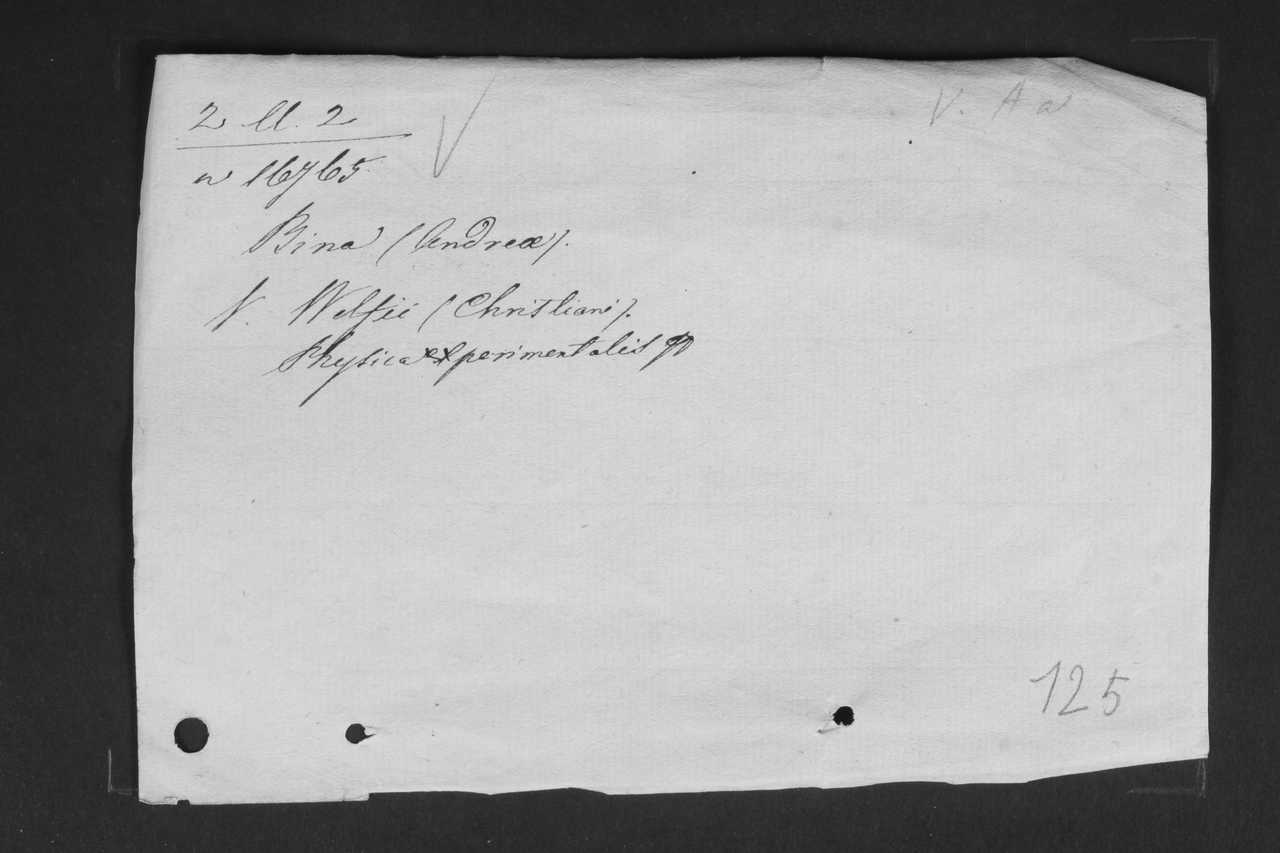 2 U. 2
V. A a
n 16765
Bina (Andreæ).
V. Wolfii (Christiani).
Physica experimentalis
125